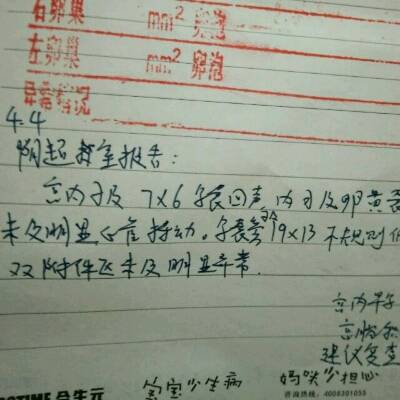 右卵巢 mm² 卵泡
左卵巢 mm² 卵泡
异常情况
4.4
阴超教室报告：
宫内可及 7×6 孕囊回声，内可及卵黄
未及明显心管搏动。孕囊旁 19×13 不规则
双附件区未及明显异常.
宫内早孕
宫腔
建议复查
TIME 合生元 宝宝少生病 妈咪少担心
咨询热线：4008301055